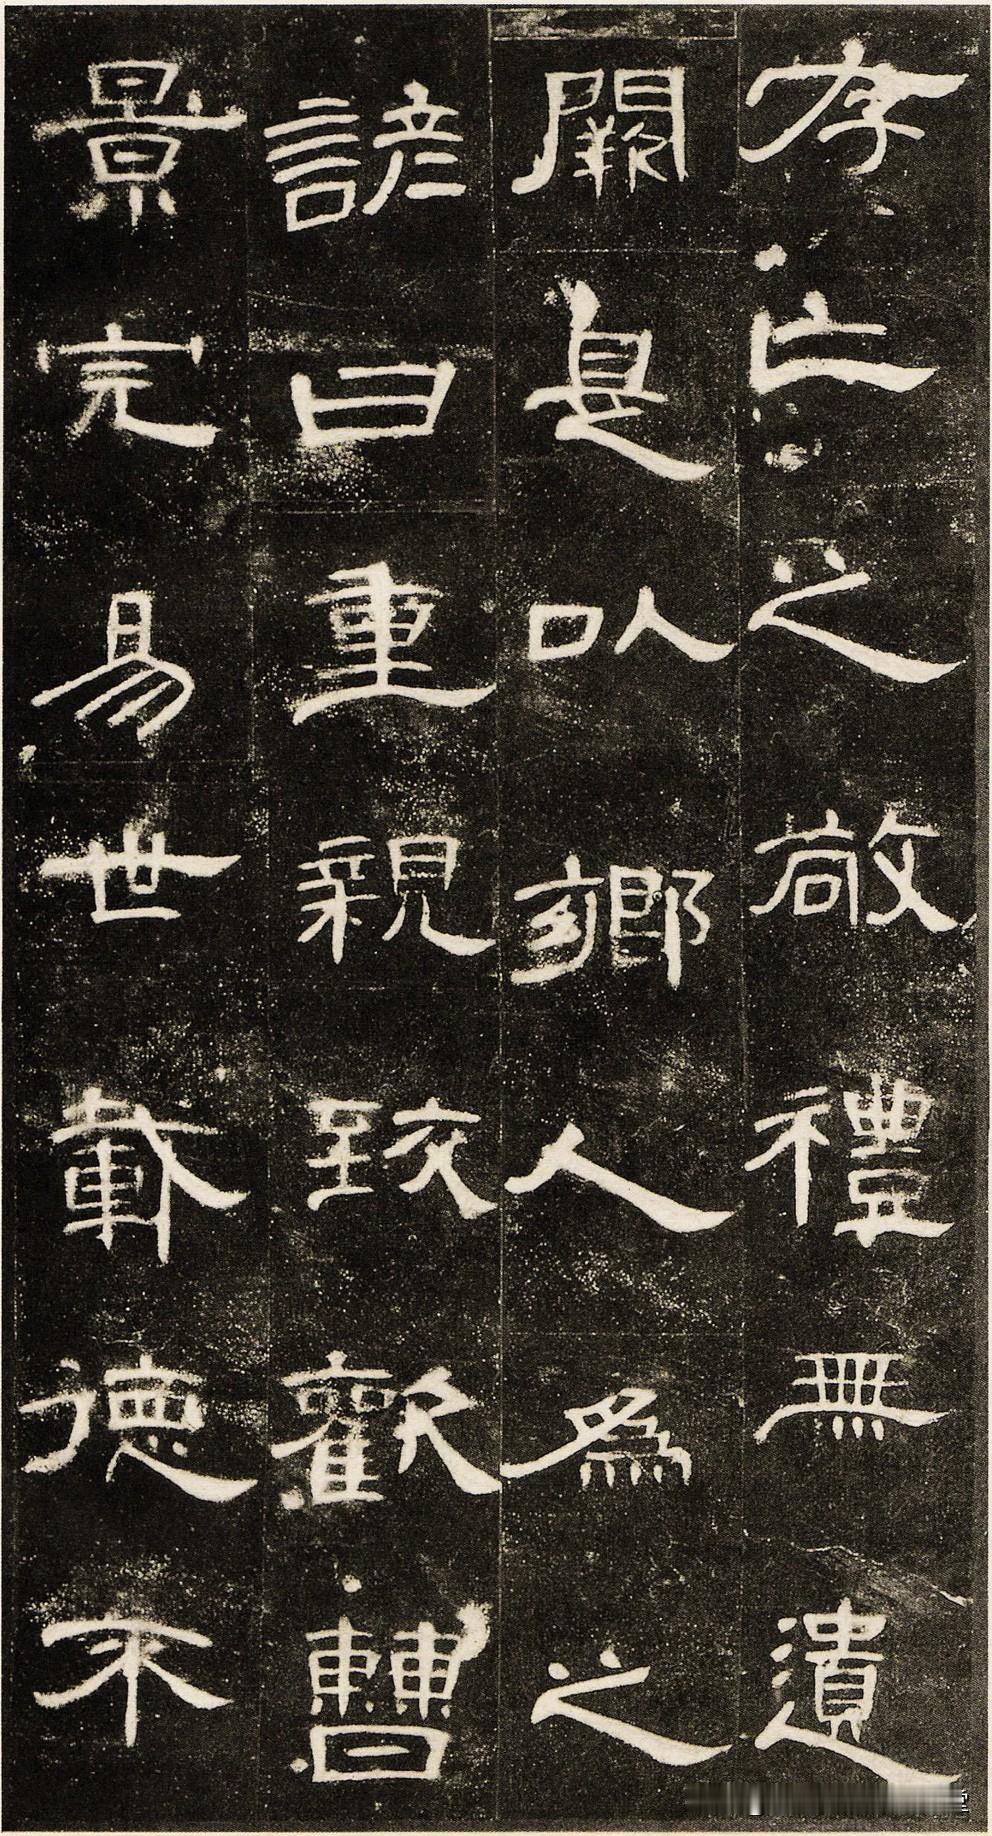 存亡之敬禮無遺
闕是以鄉人爲之
諺曰重親致歡曹
景完易世載德不